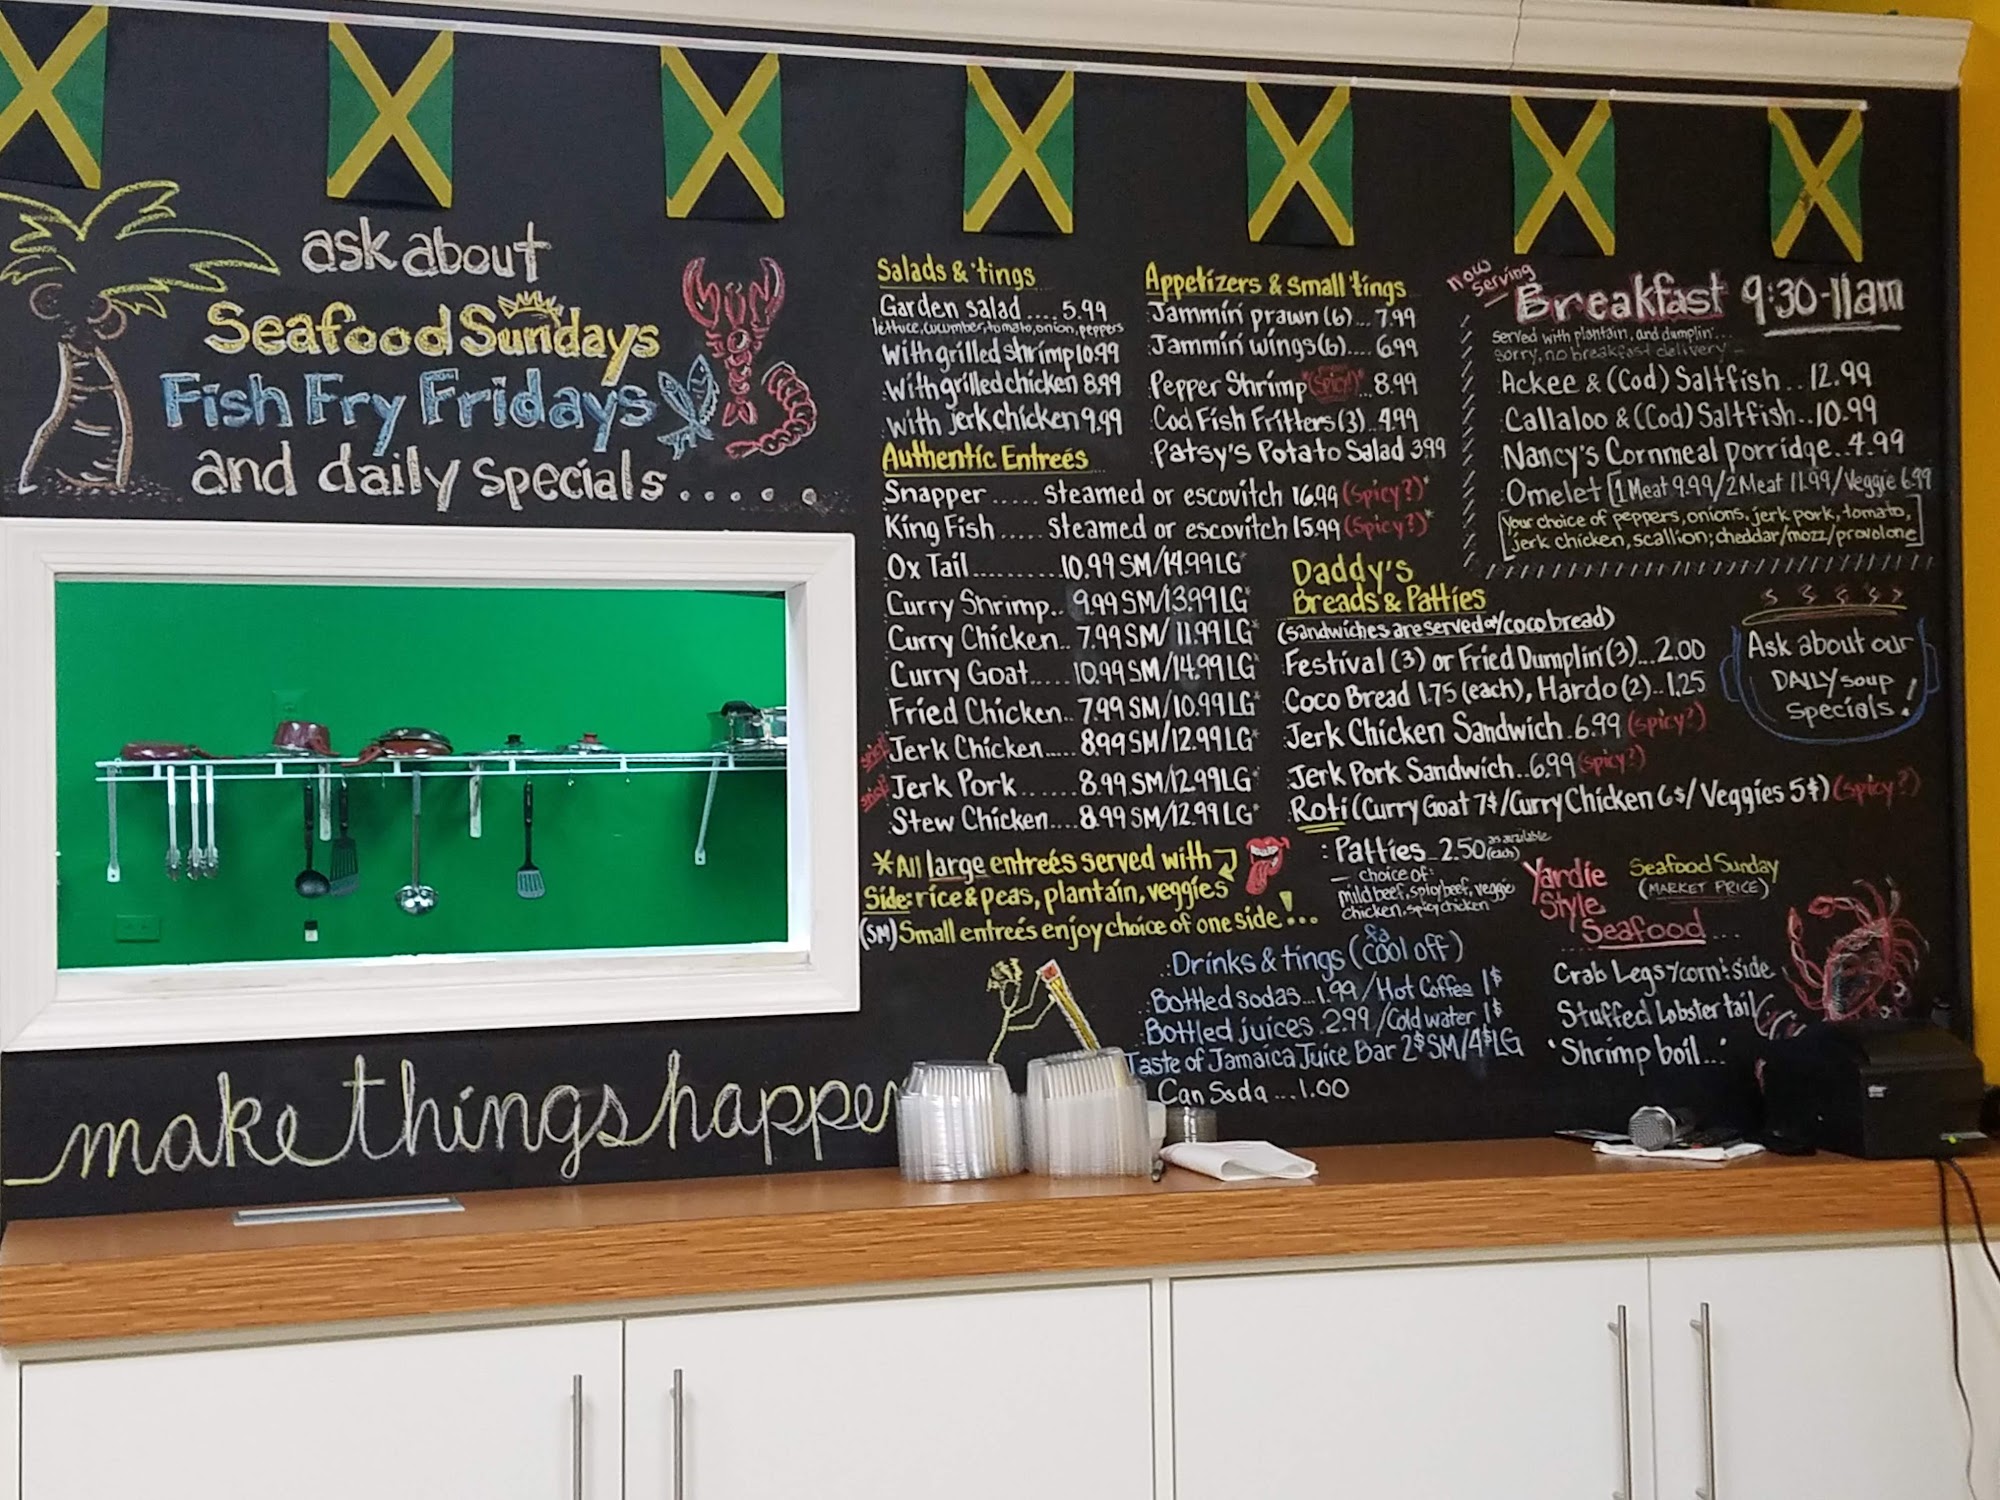 ask about
Seafood Sundays
Fish Fry Fridays
and daily specials......
make things happen
Salads & 'tings
Garden salad.... 5.99
lettuce, cucumber, tomato, onion, peppers
With grilled shrimp 10.99
With grilled chicken 8.99
With jerk chicken 9.99
Authentic Entreés
Snapper..... steamed or escovitch 16.99 (spicy?)*
King Fish..... steamed or escovitch 15.99 (spicy?)*
Ox Tail..........10.99 SM/14.99 LG*
Curry Shrimp.. 9.99 SM/13.99 LG*
Curry Chicken.. 7.99 SM/ 11.99 LG*
Curry Goat..... 10.99 SM/14.99 LG*
Fried Chicken.. 7.99 SM/10.99 LG*
spicy! Jerk Chicken..... 8.99 SM/12.99 LG*
spicy! Jerk Pork....... 8.99 SM/12.99 LG*
Stew Chicken.... 8.99 SM/12.99 LG*
*All large entreés served with
Side: rice & peas, plantain, veggies
(SM) Small entreés enjoy choice of one side!...
Appetizers & small tings
Jammin' prawn (6)... 7.99
Jammin' wings (6).... 6.99
Pepper Shrimp (spicy!) 8.99
Cod Fish Fritters (3) 4.99
Patsy's Potato Salad 3.99
now serving
Breakfast 9:30-11am
served with plantain, and dumplin'...
sorry, no breakfast delivery
Ackee & (Cod) Saltfish.. 12.99
Callaloo & (Cod) Saltfish.. 10.99
Nancy's Cornmeal porridge.. 4.99
Omelet [1 Meat 9.99/2 Meat 11.99/Veggie 6.99
[your choice of peppers, onions, jerk pork, tomato,
jerk chicken, scallion; cheddar/mozz/provolone]
Daddy's
Breads & Patties
(sandwiches are served on/coco bread)
Festival (3) or Fried Dumplin' (3)... 2.00
Coco Bread 1.75 (each), Hardo (2).. 1.25
Jerk Chicken Sandwich. 6.99 (spicy?)
Jerk Pork Sandwich.. 6.99 (spicy?)
Roti (Curry Goat 7$/Curry Chicken 6$/ Veggies 5$) (spicy?)
: Patties 2.50 (each) as available
choice of:
mild beef, spicy beef, veggie
chicken, spicy chicken
Ask about our
DAILY soup
Specials!
Yardie
Style
Seafood...
Seafood Sunday
(MARKET PRICE)
Crab Legs y corn & side
Stuffed Lobster tail
'Shrimp boil...'
Drinks & tings (fa cool off)
Bottled sodas... 1.99/Hot Coffee 1$
Bottled juices 2.99/Cold water 1$
Taste of Jamaica Juice Bar 2$ SM/4$ LG
Can Soda...1.00